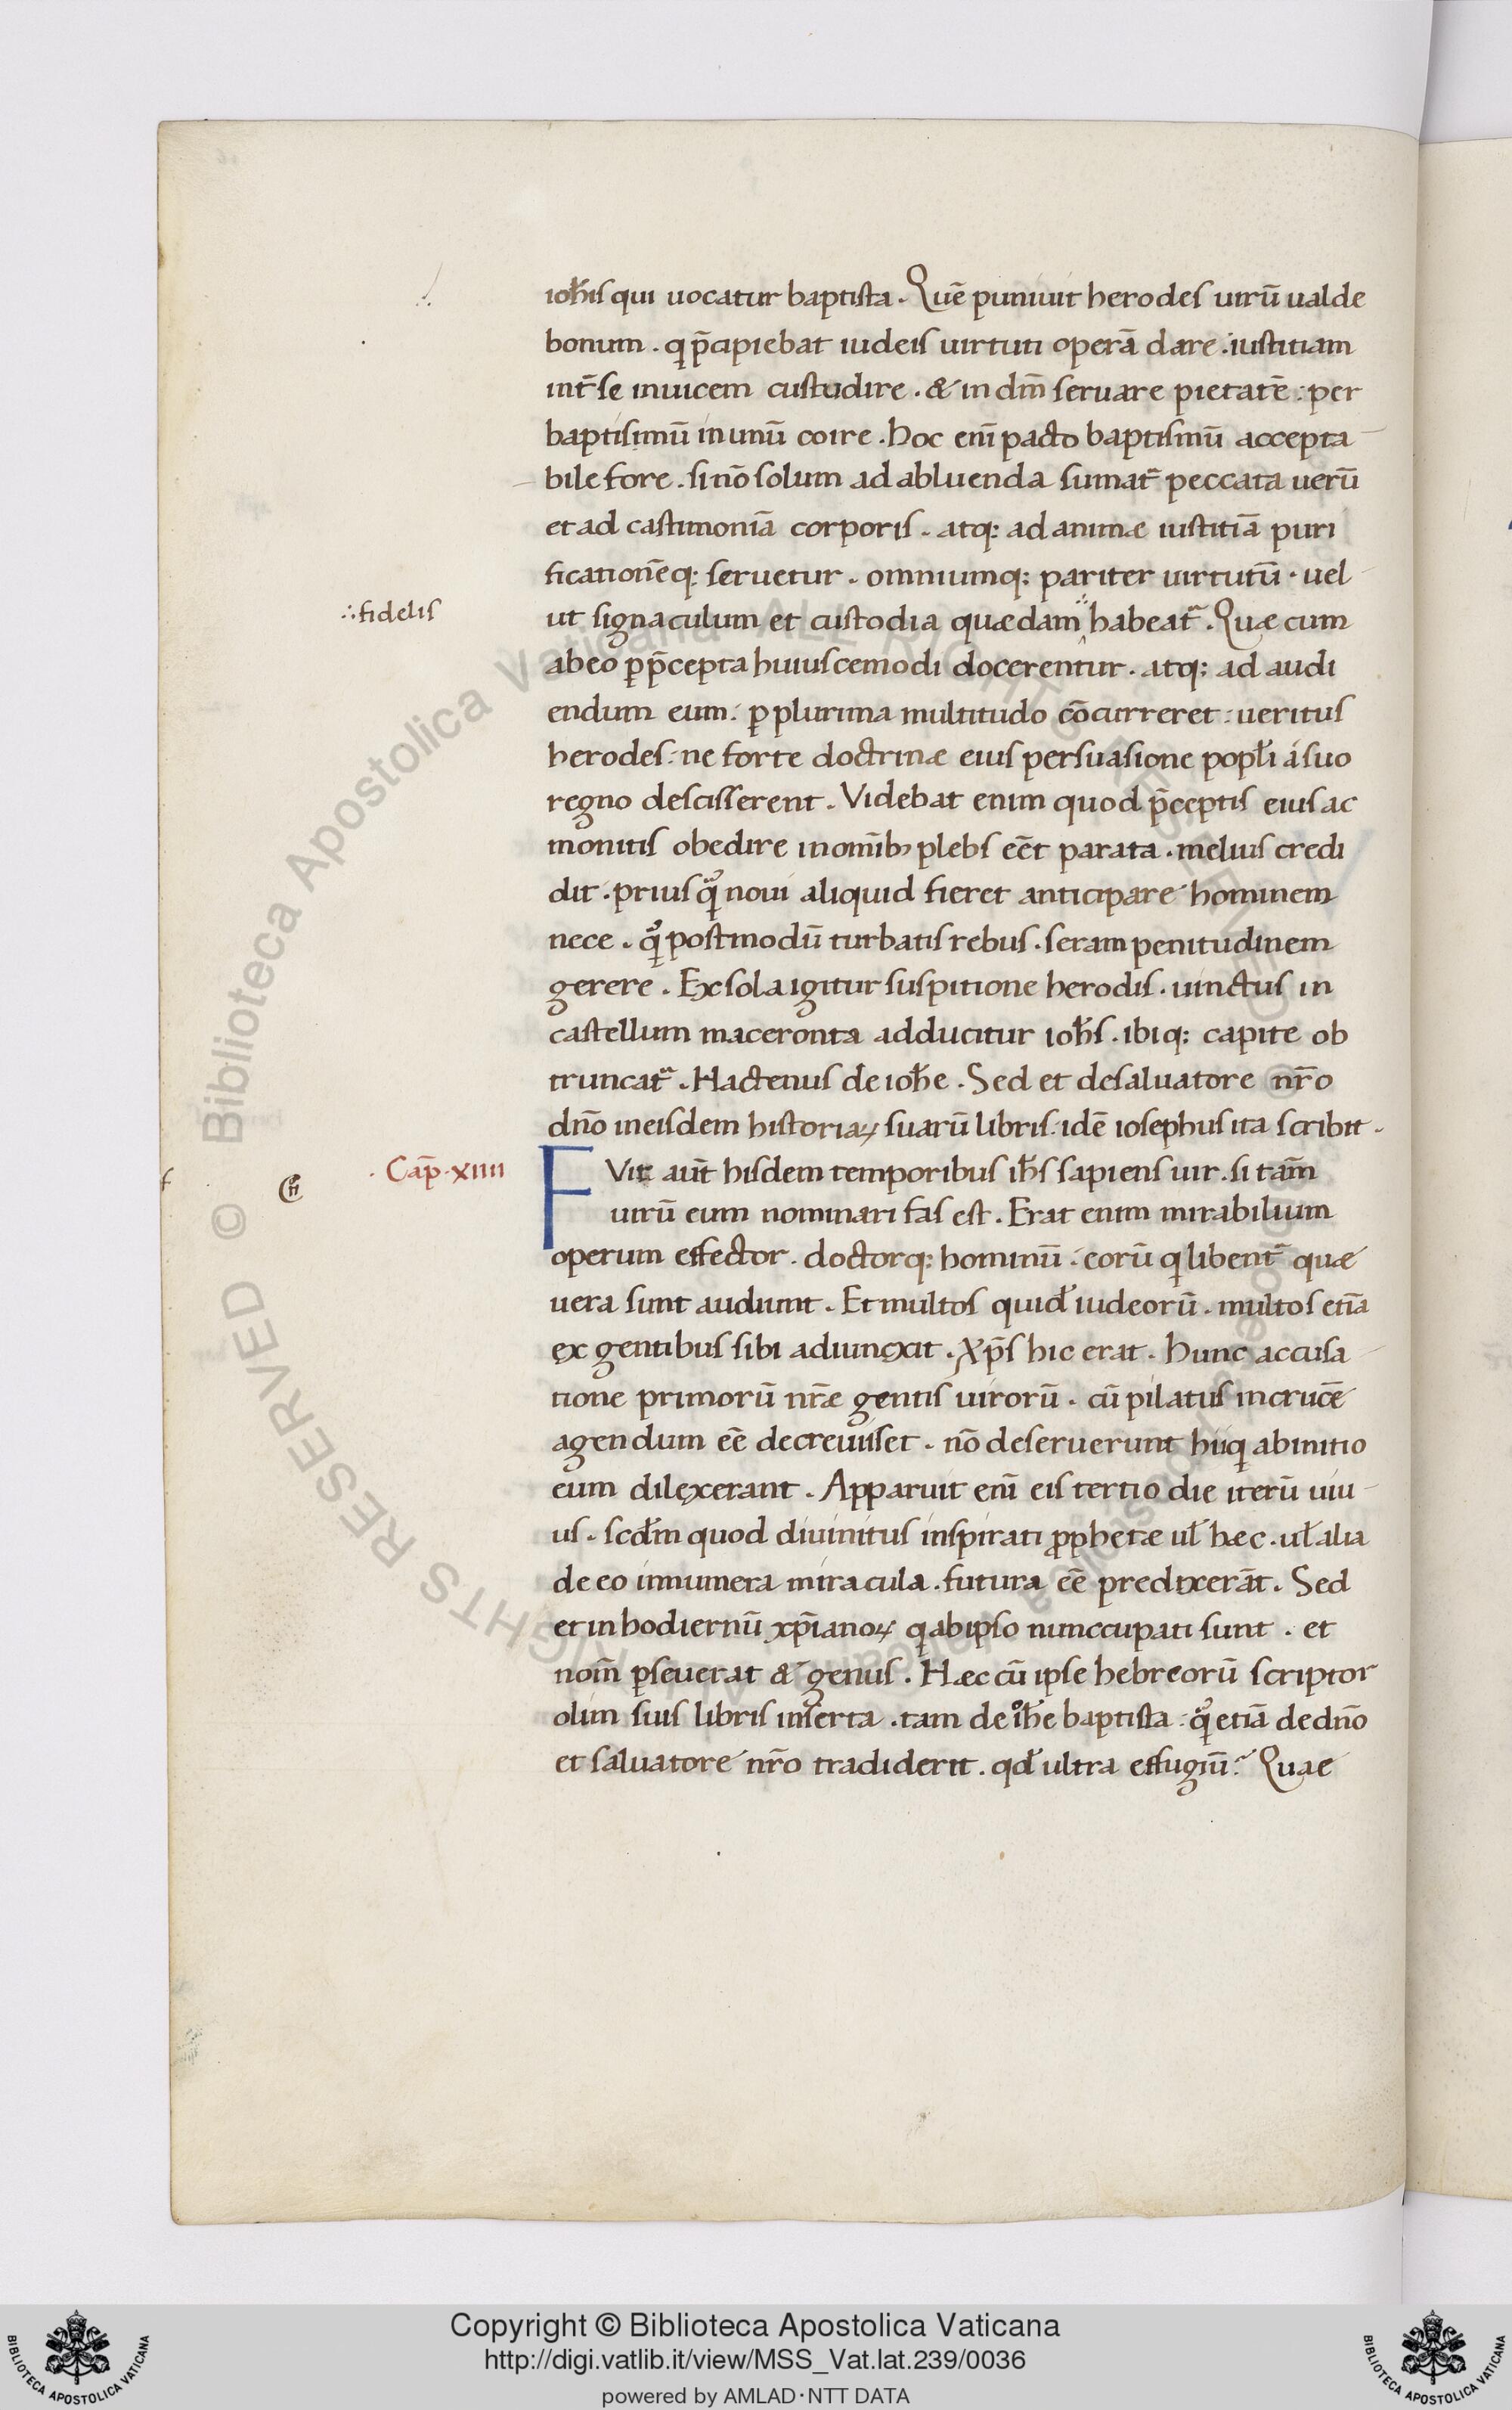 ioh̅is qui uocatur baptista. Quē puniuit herodes uirū ualde
bonum. q p̄cipiebat iudeis uirtuti operā dare. iustitiam
int̄ se inuicem custudire. & in dm̄ seruare pietatē: per
baptisimū in unū coire. Hoc eni̅ pacto baptismū accepta
bile fore. si nō solum ad abluenda sumat̄ peccata uerū
et ad castimoniā corporis. atq; ad animæ iustitiā puri
ficationēq; seruetur. omniumq; pariter uirtutū. uel
∴fidelis
ut signaculum et custodia quædam habeat̄. Quæ cum
ab eo ꝑ p̄cepta huiuscemodi docerentur. atq; ad audi
endum eum: ꝑplurima multitudo cōcurreret: ueritus
herodes: ne forte doctrinæ eius persuasione popl̅i á suo
regno descisserent. Videbat enim quod p̄ceptis eius ac
monitis obedire in om̅ib; plebs eēt parata. melius credi
dit. prius qͣ̃ noui aliquid fieret anticipare hominem
nece. qͣ̃ postmodū turbatis rebus. seram penitudinem
gerere. Ex sola igitur suspitione herodis. uinctus in
castellum maceronta adducitur ioh̅s. ibiq; capite ob
truncat̄. Hactenus de ioh̅e. Sed et de saluatore nr̄o
dn̄o in eisdem historiaꝝ suarū libris: idē iosephus ita scribit.
. Cap̄. xiiii
FVit aut̄ hisdem temporibus ih̅s sapiens uir. si tam̄
uirū eum nominari fas est. Erat enim mirabilium
operum effector. doctorq; hominū. eorū q libent̄ quæ
uera sunt audiunt. Et multos quid̅ iudeorū. multos etiā
ex gentibus sibi adiunxit. Xp̄s hic erat. Hunc accusa
tione primorū nr̄æ gentis uirorū. cū pilatus in crucē
agendum eē decreuisset. nō deseruerunt hii q ab initio
eum dilexerant. Apparuit eni̅ eis tertio die iterū uiu
us. scd̅m quod diuinitus inspirati ꝓphetæ ul̅ hæc. ul̅ alia
de eo innumera miracula. futura eē predixerāt. Sed
et in hodiernū xp̄ianoꝝ q ab ipso nunccupati sunt. et
nom̄ ꝑseuerat & genus. Hæc cū ipse hebreorū scriptor
olim suis libris inserta. tam de ioh̅e baptista: qͣ̃ etiā de dn̄o
et saluatore nr̄o tradiderit. qd̅ ultra effugiū? Quae
Biblioteca Apostolica Vaticana ALL RIGHTS RESERVED ©
Copyright © Biblioteca Apostolica Vaticana
http://digi.vatlib.it/view/MSS_Vat.lat.239/0036
powered by AMLAD·NTT DATA
BIBLIOTECA APOSTOLICA VATICANA
BIBLIOTECA APOSTOLICA VATICANA